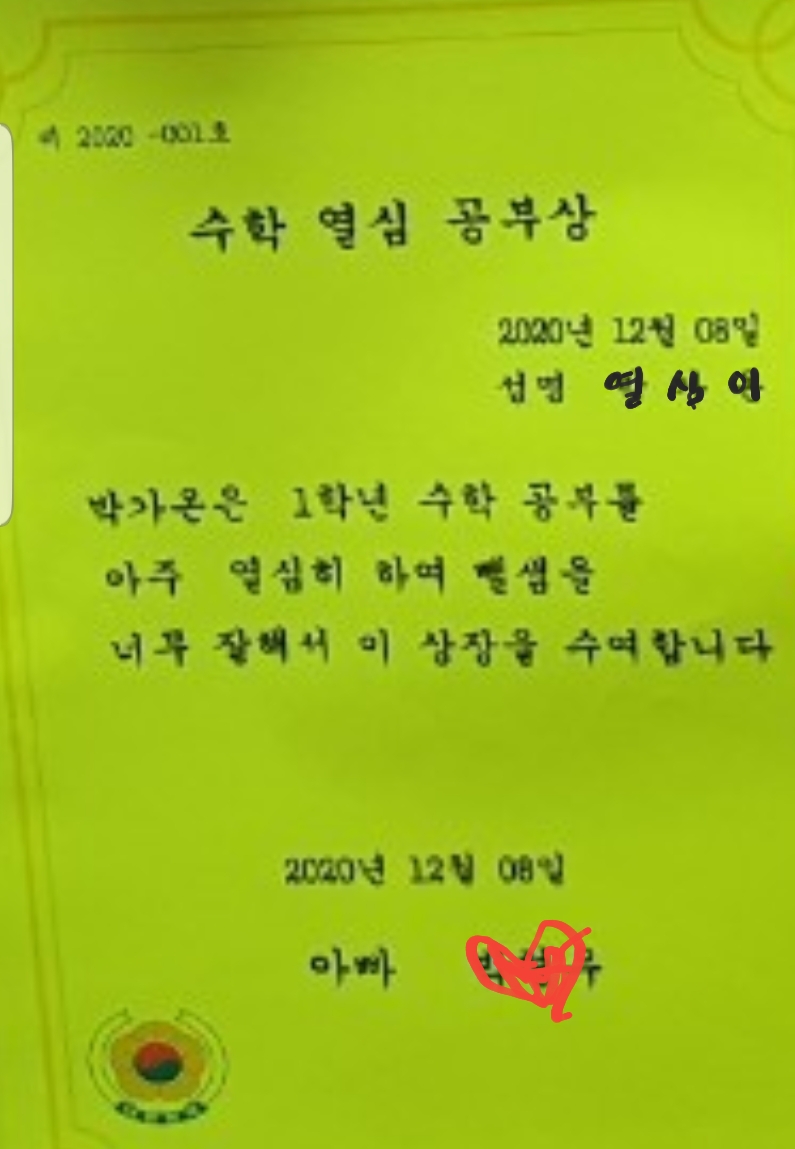 제 2020 -001호
수학 열심 공부상
2020년 12월 08일
성명 열심이
박가온은 1학년 수학 공부를
아주 열심히 하여 뺄셈을
너무 잘해서 이 상장을 수여합니다
2020년 12월 08일
아빠